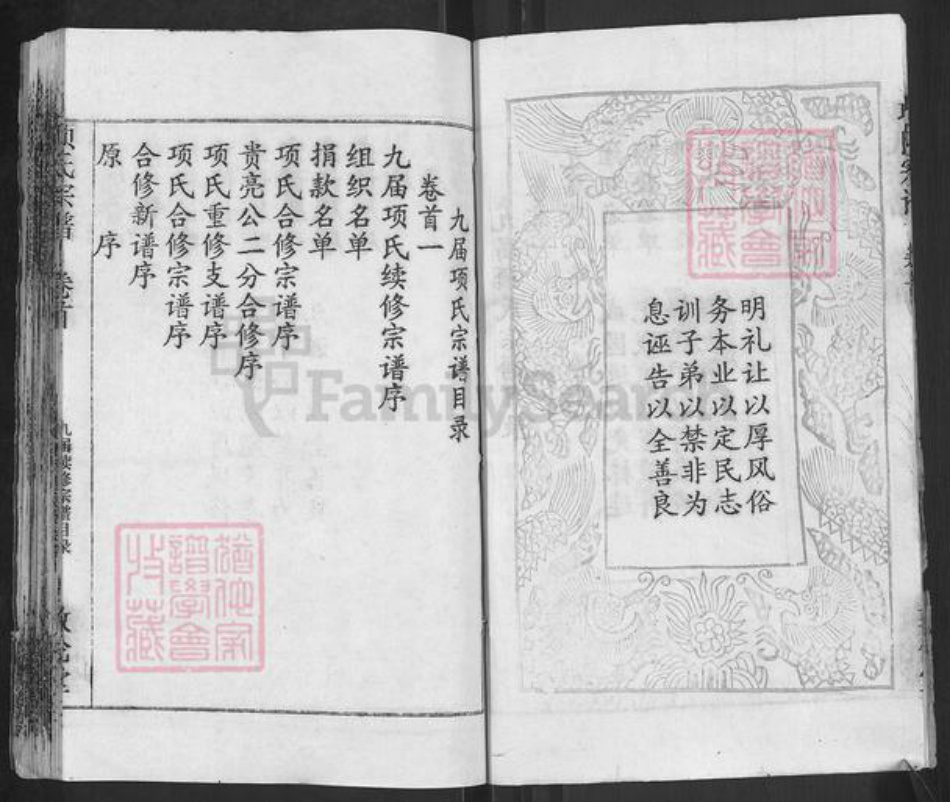 明礼让以厚风俗
务本业以定民志
训子弟以禁非为
息诬告以全善良
九届项氏宗谱目录
卷首一
九届项氏续修宗谱序
组织名单
捐款名单
项氏合修宗谱序
贵亮公二分合修序
项氏重修支谱序
项氏合修宗谱序
合修新谱序
原序
项氏宗谱
卷首
九届续修宗谱目录
FamilySearch